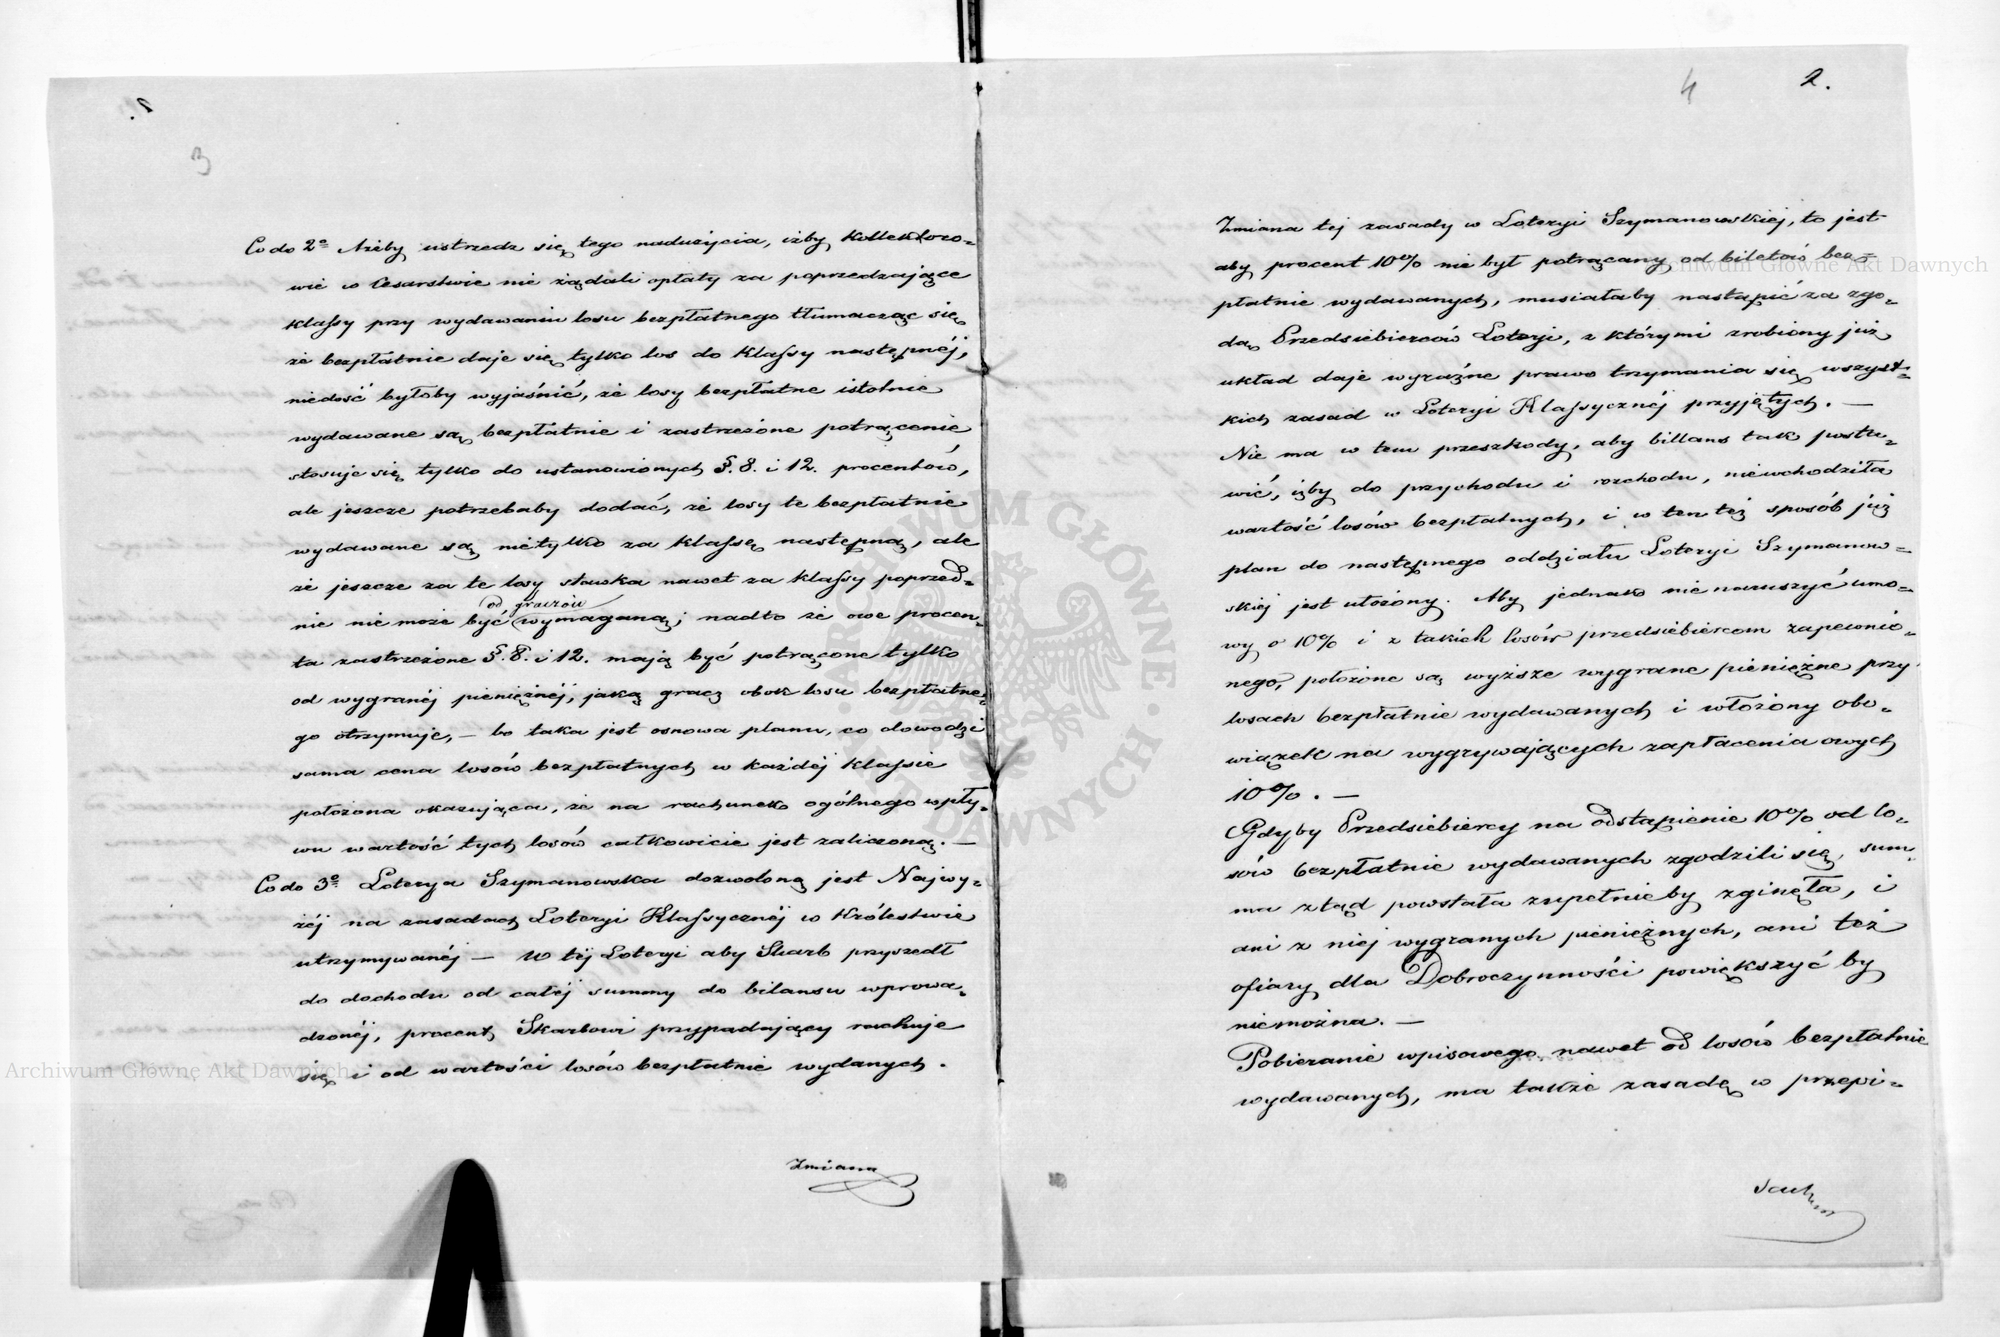 3
Co do 2º Ażeby ustrzedz się tego nadużycia, iżby Kollektoro=
wie w Cesarstwie nie żądali opłaty za poprzedzające
klassy przy wydawaniu losu bezpłatnego tłumacząc się,
że bezpłatnie daje się tylko los do klassy następnéj,
niedość byłoby wyjaśnić, że losy bezpłatne istotnie
wydawane są bezpłatnie i zastrzeżone potrącenie
stosuje się tylko do ustanowionych §. 8. i 12. procentów,
ale jeszcze potrzebaby dodać, że losy te bezpłatnie
wydawane są nietylko za klassę następną, ale
że jeszcze za te losy stawka nawet za klassy poprzed=
od graczów
nie nie może być wymaganą; nadto że owe procen=
ta zastrzeżone §. 8. i 12. mają być potrącone tylko
od wygranéj pieniężnéj, jaką gracz obok losu bezpłatne=
go otrzymuje, — bo taka jest osnowa planu, co dowodzi
sama cena losów bezpłatnych w każdéj klassie
położona okazująca, że na rachunek ogólnego wpły=
wu wartość tych losów całkowicie jest zaliczoną. —
Co do 3º Loterya Szymanowska dozwoloną jest Najwy=
żéj na zasadach Loteryi Klassycznéj w Królestwie
utrzymywanéj — W téj Loteryi aby Skarb przyszedł
do dochodu od całéj summy do bilansu wprowa=
dzonéj, procent Skarbowi przypadający rachuje
się i od wartości losów bezpłatnie wydanych.
Zmiana
4
2.
Zmiana téj zasady w Loteryi Szymanowskiéj, to jest
aby procent 10% nie był potrącany od biletów bez=
płatnie wydawanych, musiałaby nastąpić za zgo=
dą Przedsiebierców Loteryi, z którymi zrobiony już
układ daje wyraźne prawo trzymania się wszyst=
kich zasad w Loteryi Klassycznéj przyjętych. —
Nie ma w tem przeszkody, aby billans tak postu=
wić, iżby do przychodu i rozchodu, niewchodziła
wartość losów bezpłatnych, i w ten też sposób już
plan do następnego oddziału Loteryi Szymanow=
skiéj jest ułożony. Aby jednak nie naruszyć umo=
wy o 10% i z takich losów przedsiebiercom zapewnio=
nego, położone są wyższe wygrane pieniężne przy
losach bezpłatnie wydawanych i włożony obo=
wiązek na wygrywających zapłacenia owych
10%. —
Gdyby Przedsiebiercy na odstąpienie 10% od lo=
sów bezpłatnie wydawanych zgodzili się, sum=
ma ztąd powstała zupełnie by zginęła, i
ani z niej wygranych pieniężnych, ani też
ofiary dla Dobroczynności powiększyć by
niemożna. —
Pobieranie wpisowego nawet od losów bezpłatnie
wydawanych, ma także zasadę w przepi=
Archiwum Główne Akt Dawnych
Archiwum Główne Akt Dawnych
ARCHIWUM GŁÓWNE · AKT DAWNYCH ·